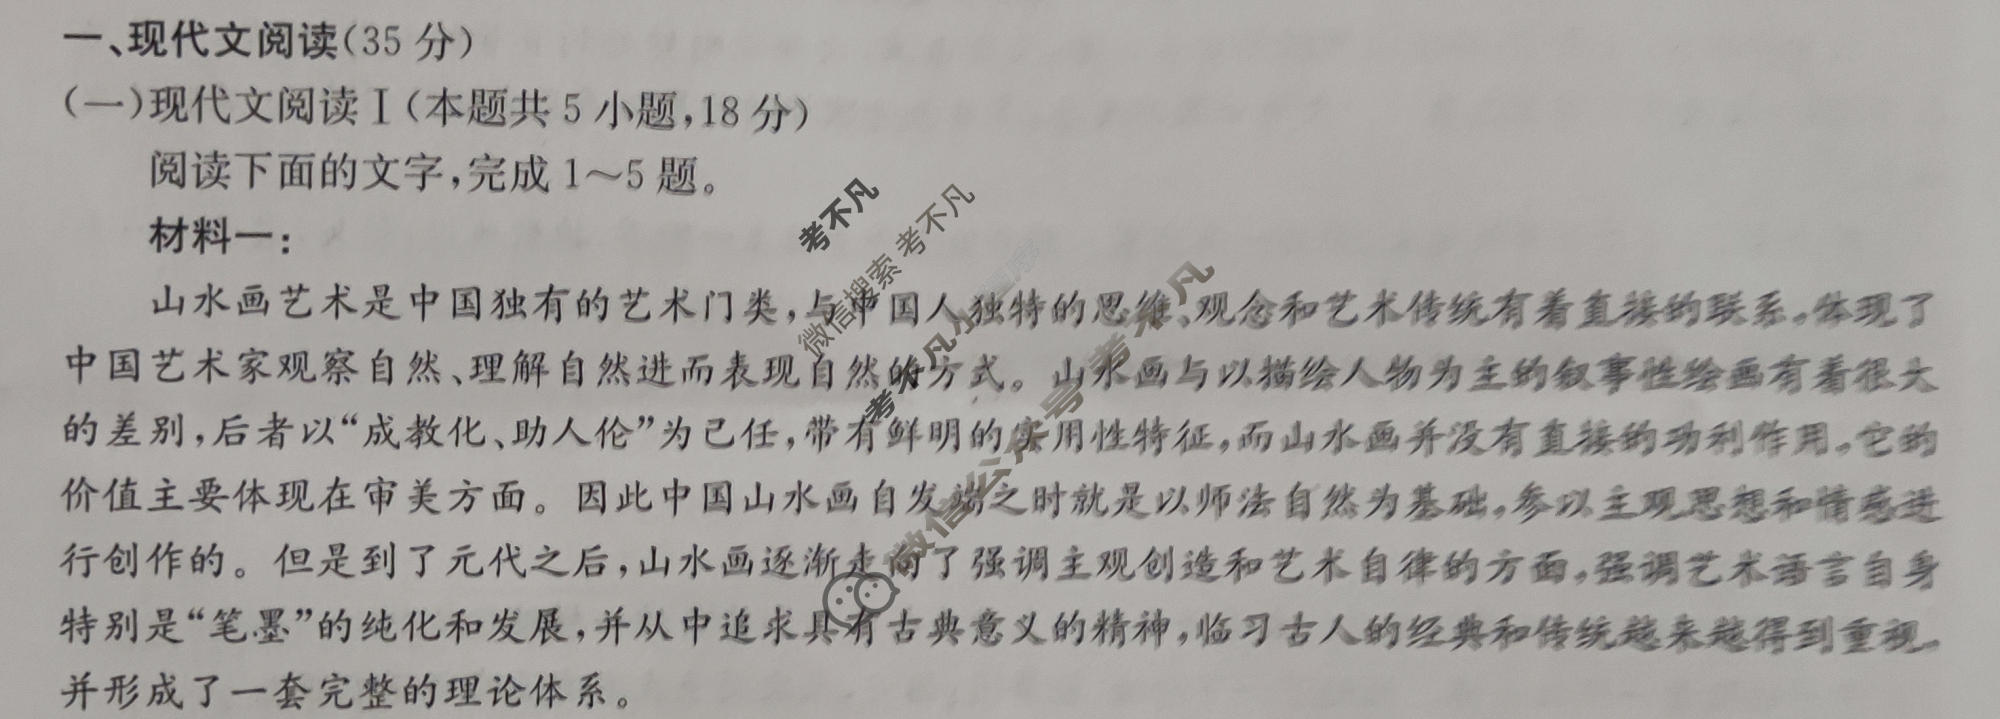 一、现代文阅读(35分)
(一)现代文阅读Ⅰ(本题共5小题,18分)
阅读下面的文字,完成1~5题。
材料一:
山水画艺术是中国独有的艺术门类,与中国人独特的思维、观念和艺术传统有着直接的联系。体现了
中国艺术家观察自然、理解自然进而表现自然的方式。山水画与以描绘人物为主的叙事性绘画有着很大
的差别,后者以“成教化、助人伦”为己任,带有鲜明的实用性特征,而山水画并没有直接的功利作用。它的
价值主要体现在审美方面。因此中国山水画自发端之时就是以师法自然为基础,参以主观思想和情感进
行创作的。但是到了元代之后,山水画逐渐走向了强调主观创造和艺术自律的方面,强调艺术语言自身
特别是“笔墨”的纯化和发展,并从中追求具有古典意义的精神,临习古人的经典和传统越来越得到重视。
并形成了一套完整的理论体系。
考不凡
微信搜索 考不凡
微信公众号 考不凡